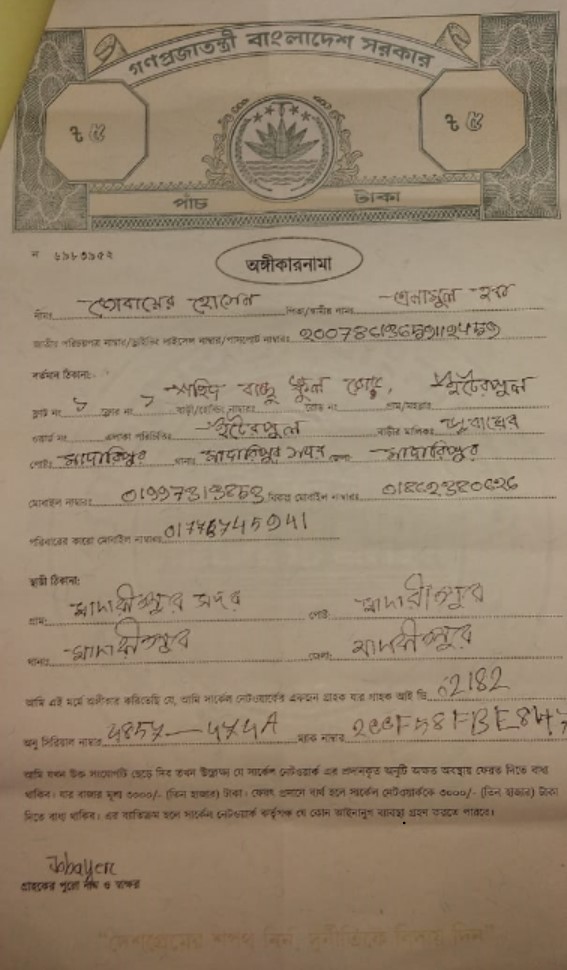 গণপ্রজাতন্ত্রী বাংলাদেশ সরকার
৳ ৫ ৳ ৫
পাঁচ টাকা
ন ৬৯৮৩৯৫২
অঙ্গীকারনামা
নামঃ জোবায়ের হোসেন পিতা/স্বামীর নামঃ এনামুল হক
জাতীয় পরিচয়পত্র নাম্বার/ড্রাইভিং লাইসেন্স নাম্বার/পাসপোর্ট নাম্বারঃ
বর্তমান ঠিকানা:-
ফ্লাট নং ফ্লোর নং বাড়ী/হোল্ডিং নাম্বারঃ শহিদ বাচ্চু স্কুল রোড, রোড নং গ্রাম/মহল্লাঃ ইটেরপুল
ওয়ার্ড নং এলাকা পরিচিতিঃ ইটেরপুল বাড়ীর মালিকঃ
পোষ্টঃ মাদারিপুর থানাঃ মাদারিপুর সদর জেলাঃ মাদারিপুর
মোবাইল নাম্বারঃ 01997313853 বিকল্প মোবাইল নাম্বারঃ
পরিবারের কারো মোবাইল নাম্বারঃ
স্থায়ী ঠিকানা:
গ্রামঃ মাদারীপুর সদর পোষ্টঃ মাদারীপুর
থানাঃ মাদারীপুর জেলাঃ মাদারীপুর
আমি এই মর্মে অঙ্গীকার করিতেছি যে, আমি সার্কেল নেটওয়ার্কের একজন গ্রাহক যার গ্রাহক আই ডি 62182
অনু সিরিয়াল নাম্বার ম্যাক নাম্বার
আমি যখন উক্ত সংযোগটি ছেড়ে দিব তখন উল্লেখ্য যে সার্কেল নেটওয়ার্ক এর প্রদানকৃত অনুটি অক্ষত অবস্থায় ফেরত দিতে বাধ্য
থাকিব। যার বাজার মূল্য ৩০০০/- (তিন হাজার) টাকা। ফেরৎ প্রদানে ব্যর্থ হলে সার্কেল নেটওয়ার্ককে ৩০০০/- (তিন হাজার) টাকা
দিতে বাধ্য থাকিব। এর ব্যতিক্রম হলে সার্কেল নেটওয়ার্ক কর্তৃপক্ষ যে কোন আইনানুগ ব্যবস্থা গ্রহন করতে পারবে।
Jobayer
গ্রাহকের পুরো নাম ও স্বাক্ষর
"দেশপ্রেমের শপথ নিন, দুর্নীতিকে বিদায় দিন"